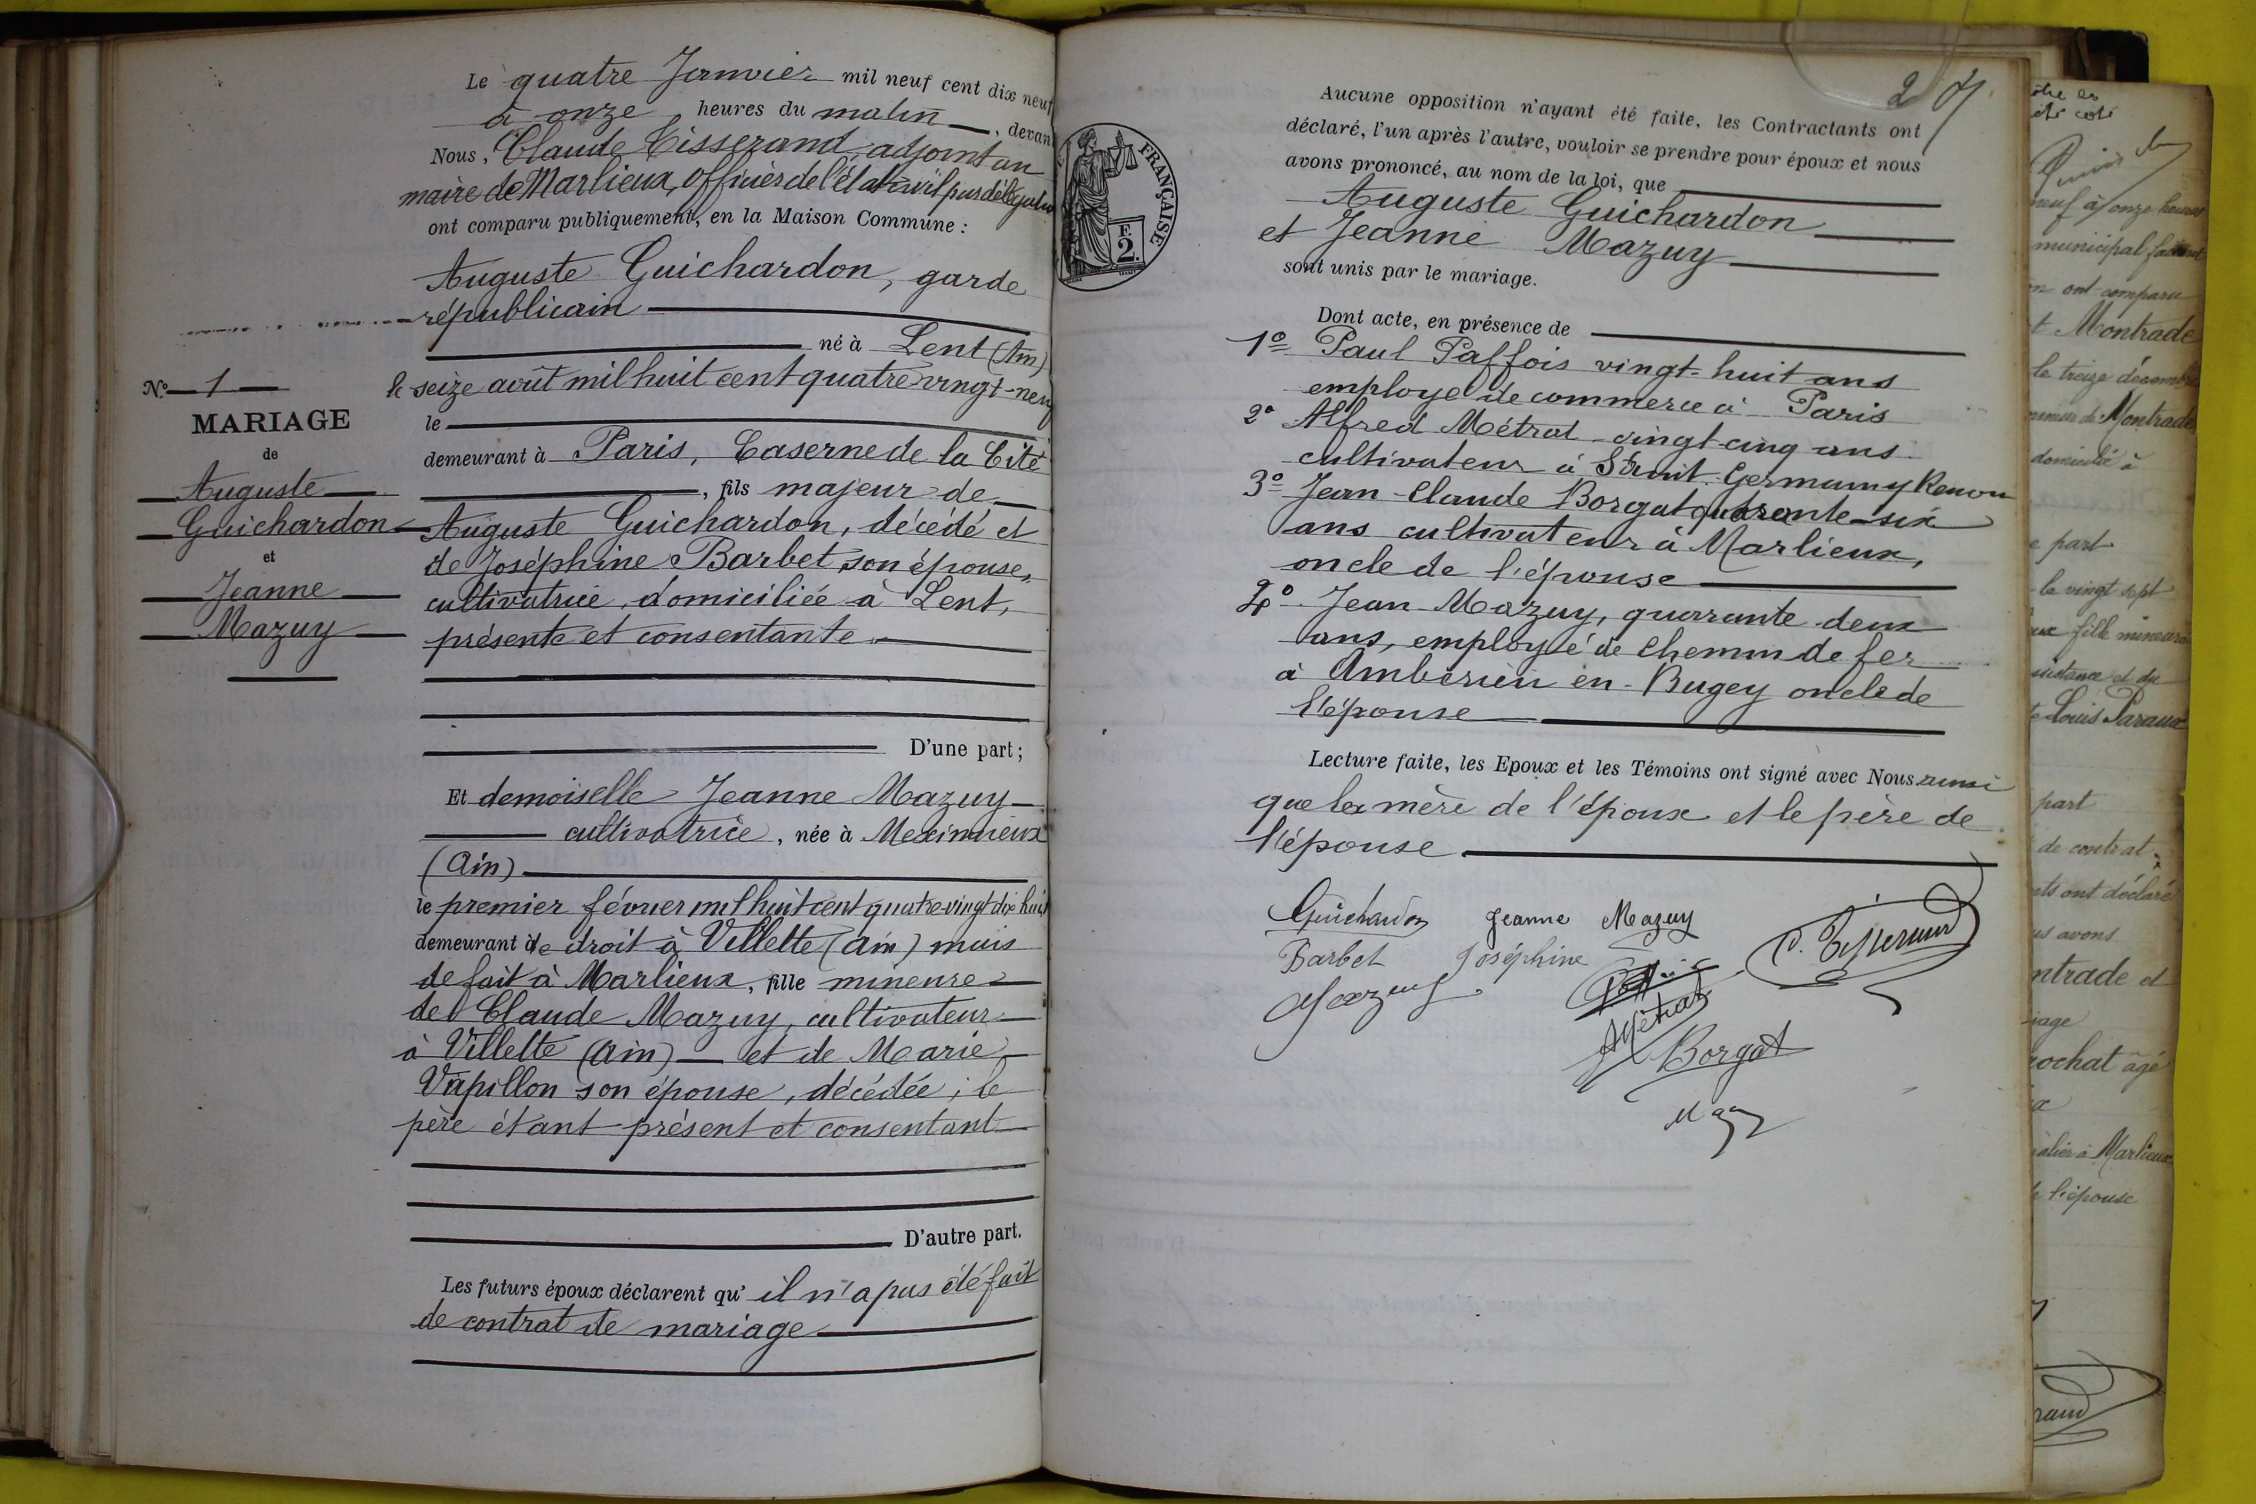 Le quatre Janvier mil neuf cent dix neuf
à onze heures du matin, devan
Nous, Claude Tisserand, adjoint au
maire de Marlieux, officier de l'état civil par délégation
ont comparu publiquement, en la Maison Commune :
Auguste Guichardon, garde
républicain
né à Lent (Ain)
le seize août mil huit cent quatre vingt-neuf
le
demeurant à Paris, Caserne de la Cité
, fils majeur de
Auguste Guichardon, décédé et
de Joséphine Barbet, son épouse,
cultivatrice, domiciliée à Lent,
présente et consentante
D'une part ;
Et demoiselle Jeanne Mazuy
cultivatrice, née à Meximieux
(Ain)
le premier février mil huit cent quatre-vingt dix huit
demeurant de droit à Villette (Ain) mais
de fait à Marlieux, fille mineure
de Claude Mazuy, cultivateur
à Villette (Ain) et de Marie
Vapillon son épouse, décédée ; le
père étant présent et consentant
D'autre part.
Les futurs époux déclarent qu' il n'a pas été fait
de contrat de mariage
N° 1
MARIAGE
de
Auguste
Guichardon
et
Jeanne
Mazuy
FRANÇAISE
F.
2.
2
Aucune opposition n'ayant été faite, les Contractants ont
déclaré, l'un après l'autre, vouloir se prendre pour époux et nous
avons prononcé, au nom de la loi, que
Auguste Guichardon
et Jeanne Mazuy
sont unis par le mariage.
Dont acte, en présence de
1° Paul Paffois vingt-huit ans
employé de commerce à Paris
2° Alfred Métrat vingt-cinq ans
cultivateur à St Germain y Renon
3° Jean-Claude Borgat quarante-six
ans cultivateur à Marlieux,
oncle de l'épouse
4° Jean Mazuy, quarante deux
ans, employé de Chemin de fer
à Ambérieu en-Bugey oncle de
l'épouse
Lecture faite, les Epoux et les Témoins ont signé avec Nous ainsi
que la mère de l'époux et le père de
l'épouse
Guichardon Jeanne Mazuy
Barbet Joséphine C. Tisserand
Mazuy
Métrat
Borgat
neuf à onze heures
municipal
on ont comparu
t Montrade
le treize décembre
de Montrade
domicilié à
e part
le vingt sept
fille mineure
et du
Louis Paraux
part
de contrat
nts ont déclaré
us avons
ntrade et
iage
rochat âgé
à Marlieux
l'épouse
rand